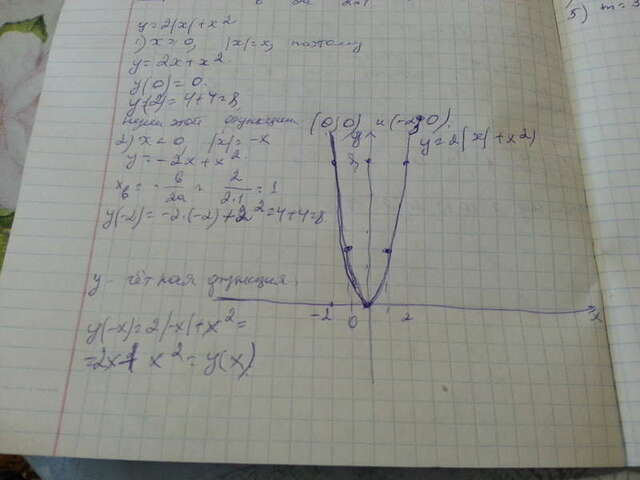 5) m=
y=2|x|+x²
1) x≥0, |x|=x, поэтому
y=2x+x².
y(0)=0.
y(2)=4+4=8,
нули этой функции (0;0) и (-2;0).
2) x<0, |x|=-x
y=-2x+x².
xв=-b/2a=2/2·1=1
y(-2)=-2·(-2)+2²=4+4=8
y - чётная функция.
y(-x)=2|-x|+x²=
=2x+x²=y(x)
y
8
y=2|x|+x²)
-2 0 2 x